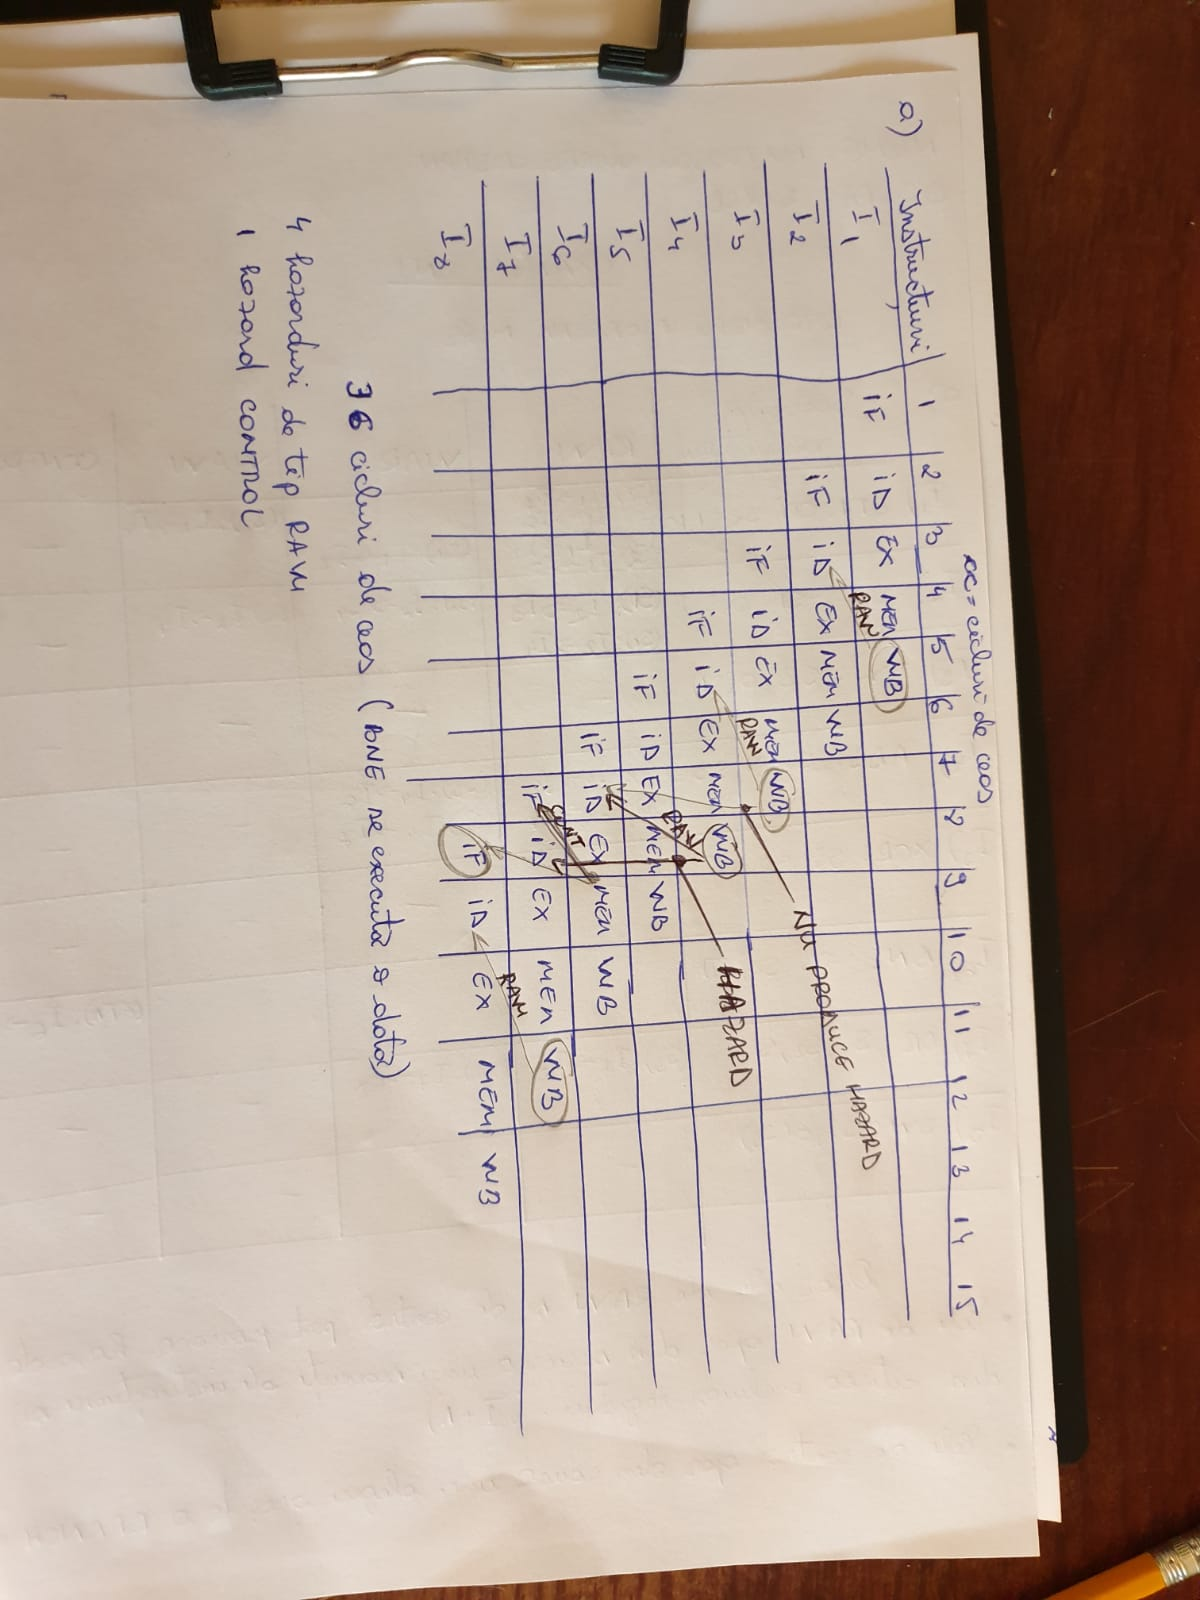 cc = cicluri de ceas
a) Instrucțiuni 1 2 3 4 5 6 7 8 9 10 11 12 13 14 15
I1 IF ID EX MEM WB
RAW
I2 IF ID EX MEM WB
I3 IF ID EX MEM WB
RAW
I4 IF ID EX MEM WB
RAW
I5 IF ID EX MEM WB
I6 IF ID EX MEM WB
CONT
I7 IF ID EX MEM WB
RAW
I8 IF ID EX MEM WB
NU PRODUCE HAZARD
HAZARD
36 cicluri de ceas (BNE se execută o dată)
4 hazarduri de tip RAW
1 hazard CONTROL